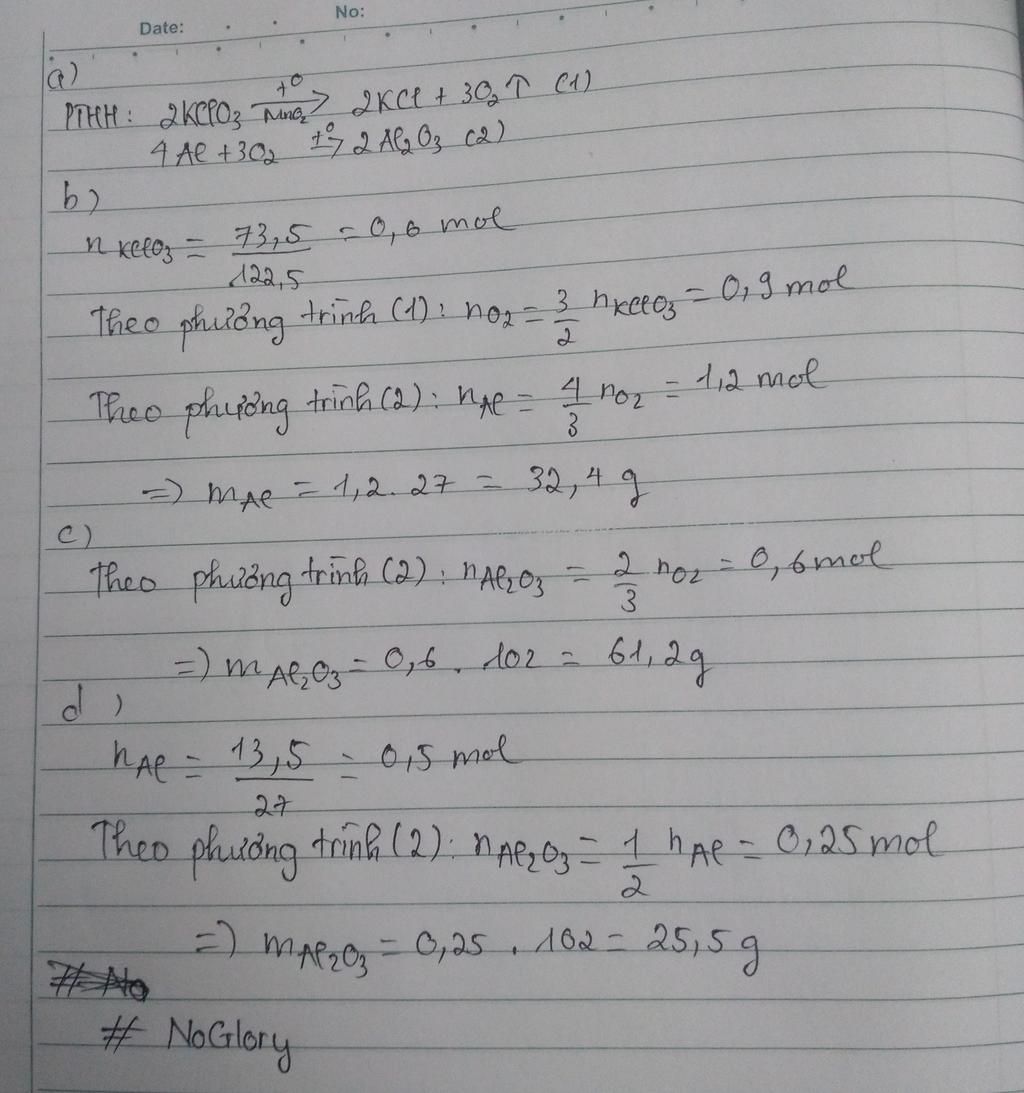 Date: No:
a)
PTHH: 2KClO₃ \xrightarrow[MnO₂]{t⁰} 2KCl + 3O₂↑ (1)
4Al + 3O₂ \xrightarrow{t⁰} 2Al₂O₃ (2)
b)
n KClO₃ = \frac{73,5}{122,5} = 0,6 mol
Theo phương trình (1): nO₂ = \frac{3}{2} nKClO₃ = 0,9 mol
Theo phương trình (2): nAl = \frac{4}{3} nO₂ = 1,2 mol
=> mAl = 1,2. 27 = 32,4 g
c)
Theo phương trình (2): nAl₂O₃ = \frac{2}{3} nO₂ = 0,6 mol
=> mAl₂O₃ = 0,6 . 102 = 61,2g
d)
nAl = \frac{13,5}{27} = 0,5 mol
Theo phương trình (2): nAl₂O₃ = \frac{1}{2} nAl = 0,25 mol
=> mAl₂O₃ = 0,25 . 102 = 25,5 g
# No
# NoGlory